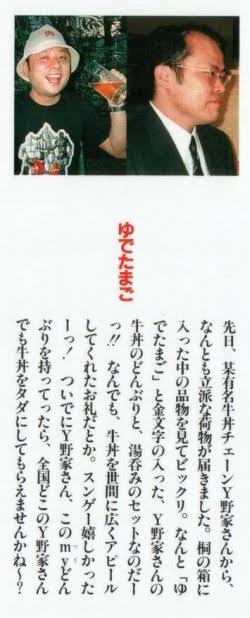 ゆでたまご
先日、某有名牛丼チェーンY野家さんから、
なんとも立派な荷物が届きました。桐の箱に
入った中の品物を見てビックリ。なんと「ゆ
でたまご」と金文字の入った、Y野家さんの
牛丼のどんぶりと、湯呑みのセットなのだー
っ!! なんでも、牛丼を世間に広くアピール
してくれたお礼だとか。スンゲー嬉しかった
ーっ! ついでにY野家さん、このmyどん
マイ
ぶりを持ってったら、全国どこのY野家さん
でも牛丼をタダにしてもらえませんかね〜?